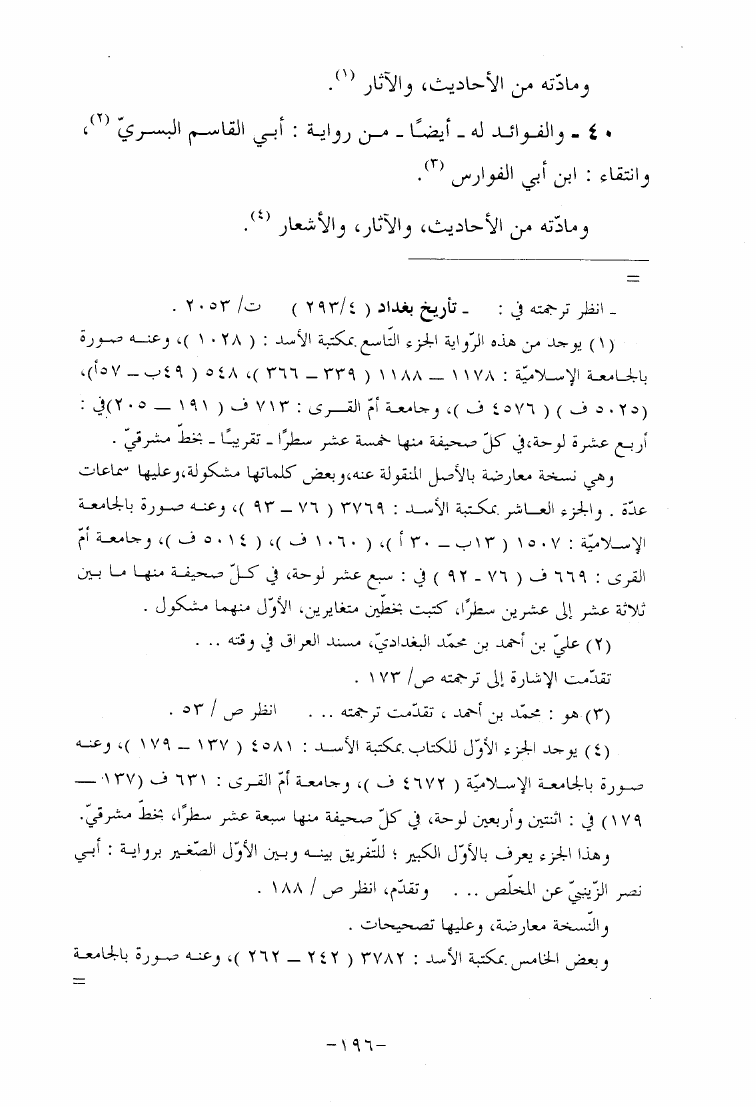 ومادّته من الأحاديث، والآثار (١).
• ٤ - والفوائد له - أيضًا - من رواية : أبي القاسم البسريّ (٢)،
وانتقاء : ابن أبي الفوارس (٣).
ومادّته من الأحاديث، والآثار، والأشعار (٤).
=
- انظر ترجمته في : - تأريخ بغداد ( ٤/ ٢٩٣ ) ت/ ٢٠٥٣ .
(١) يوجد من هذه الرّواية الجزء التّاسع بمكتبة الأسد : ( ١٠٢٨ )، وعنه صورة
بالجامعة الإسلاميّة : ١١٧٨ – ١١٨٨ ( ٣٣٩ – ٣٦٦ )، ٥٤٨ ( ٤٩ب – ٥٧أ)،
(٥٠٢٥ ف ) ( ٤٥٧٦ ف )، وجامعة أمّ القرى : ٧١٣ ف ( ١٩١ – ٢٠٥)في :
أربع عشرة لوحة،في كلّ صحيفة منها خمسة عشر سطرًا - تقريبًا - بخطّ مشرقيّ .
وهي نسخة معارضة بالأصل المنقولة عنه،وبعض كلماتها مشكولة،وعليها سماعات
عدّة . والجزء العاشر بمكتبة الأسد : ٣٧٦٩ ( ٧٦ – ٩٣ )، وعنه صورة بالجامعة
الإسلاميّة : ١٥٠٧ ( ١٣ب – ٣٠ أ )، ( ١٠٦٠ ف)، ( ٥٠١٤ ف )، وجامعة أمّ
القرى : ٦٦٩ ف ( ٧٦ - ٩٢ ) في : سبع عشر لوحة، في كلّ صحيفة منها ما بين
ثلاثة عشر إلى عشرين سطرًا، كتبت بخطّين متغايرين، الأوّل منهما مشكول .
(٢) عليّ بن أحمد بن محمّد البغداديّ، مسند العراق في وقته ..
تقدّمت الإشارة إلى ترجمته ص/ ١٧٣ .
(٣) هو : محمّد بن أحمد ، تقدّمت ترجمته ... انظر ص / ٥٣ .
(٤) يوجد الجزء الأوّل للكتاب بمكتبة الأسد : ٤٥٨١ ( ١٣٧ – ١٧٩ )، وعنه
صورة بالجامعة الإسلاميّة ( ٤٦٧٢ ف )، وجامعة أمّ القرى : ٦٣١ ف (١٣٧ –
١٧٩ ) في : اثنتين وأربعين لوحة، في كلّ صحيفة منها سبعة عشر سطرًا، بخطّ مشرقيّ.
وهذا الجزء يعرف بالأوّل الكبير ؛ للتّفريق بينه وبين الأوّل الصّغير برواية : أبي
نصر الزّينبيّ عن المخلّص ... وتقدّم، انظر ص / ١٨٨ .
والنّسخة معارضة، وعليها تصحيحات .
وبعض الخامس بمكتبة الأسد : ٣٧٨٢ ( ٢٤٢ – ٢٦٢ )، وعنه صورة بالجامعة
=
-١٩٦-